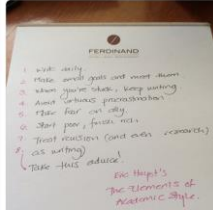 FERDINAND
1. Write daily.
2. Make small goals and meet them
3. When you're stuck, keep writing.
4. Avoid virtuous procrastination.
5. Make fear an ally.
6. Start poor, finish rich.
7. Treat revision (and even research)
as writing)
8. Take this advice!
Eric Hayot's
The Elements of
Academic Style.